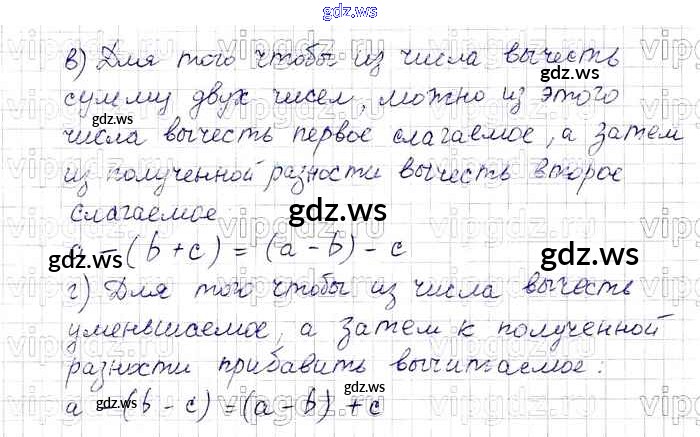 gdz.ws
в) Для того чтобы из числа вычесть
сумму двух чисел, можно из этого
числа вычесть первое слагаемое, а затем
из полученной разности вычесть второе
слагаемое:
a - (b + c) = (a - b) - c
г) Для того чтобы из числа вычесть
уменьшаемое, а затем к полученной
разности прибавить вычитаемое:
a - (b - c) = (a - b) + c